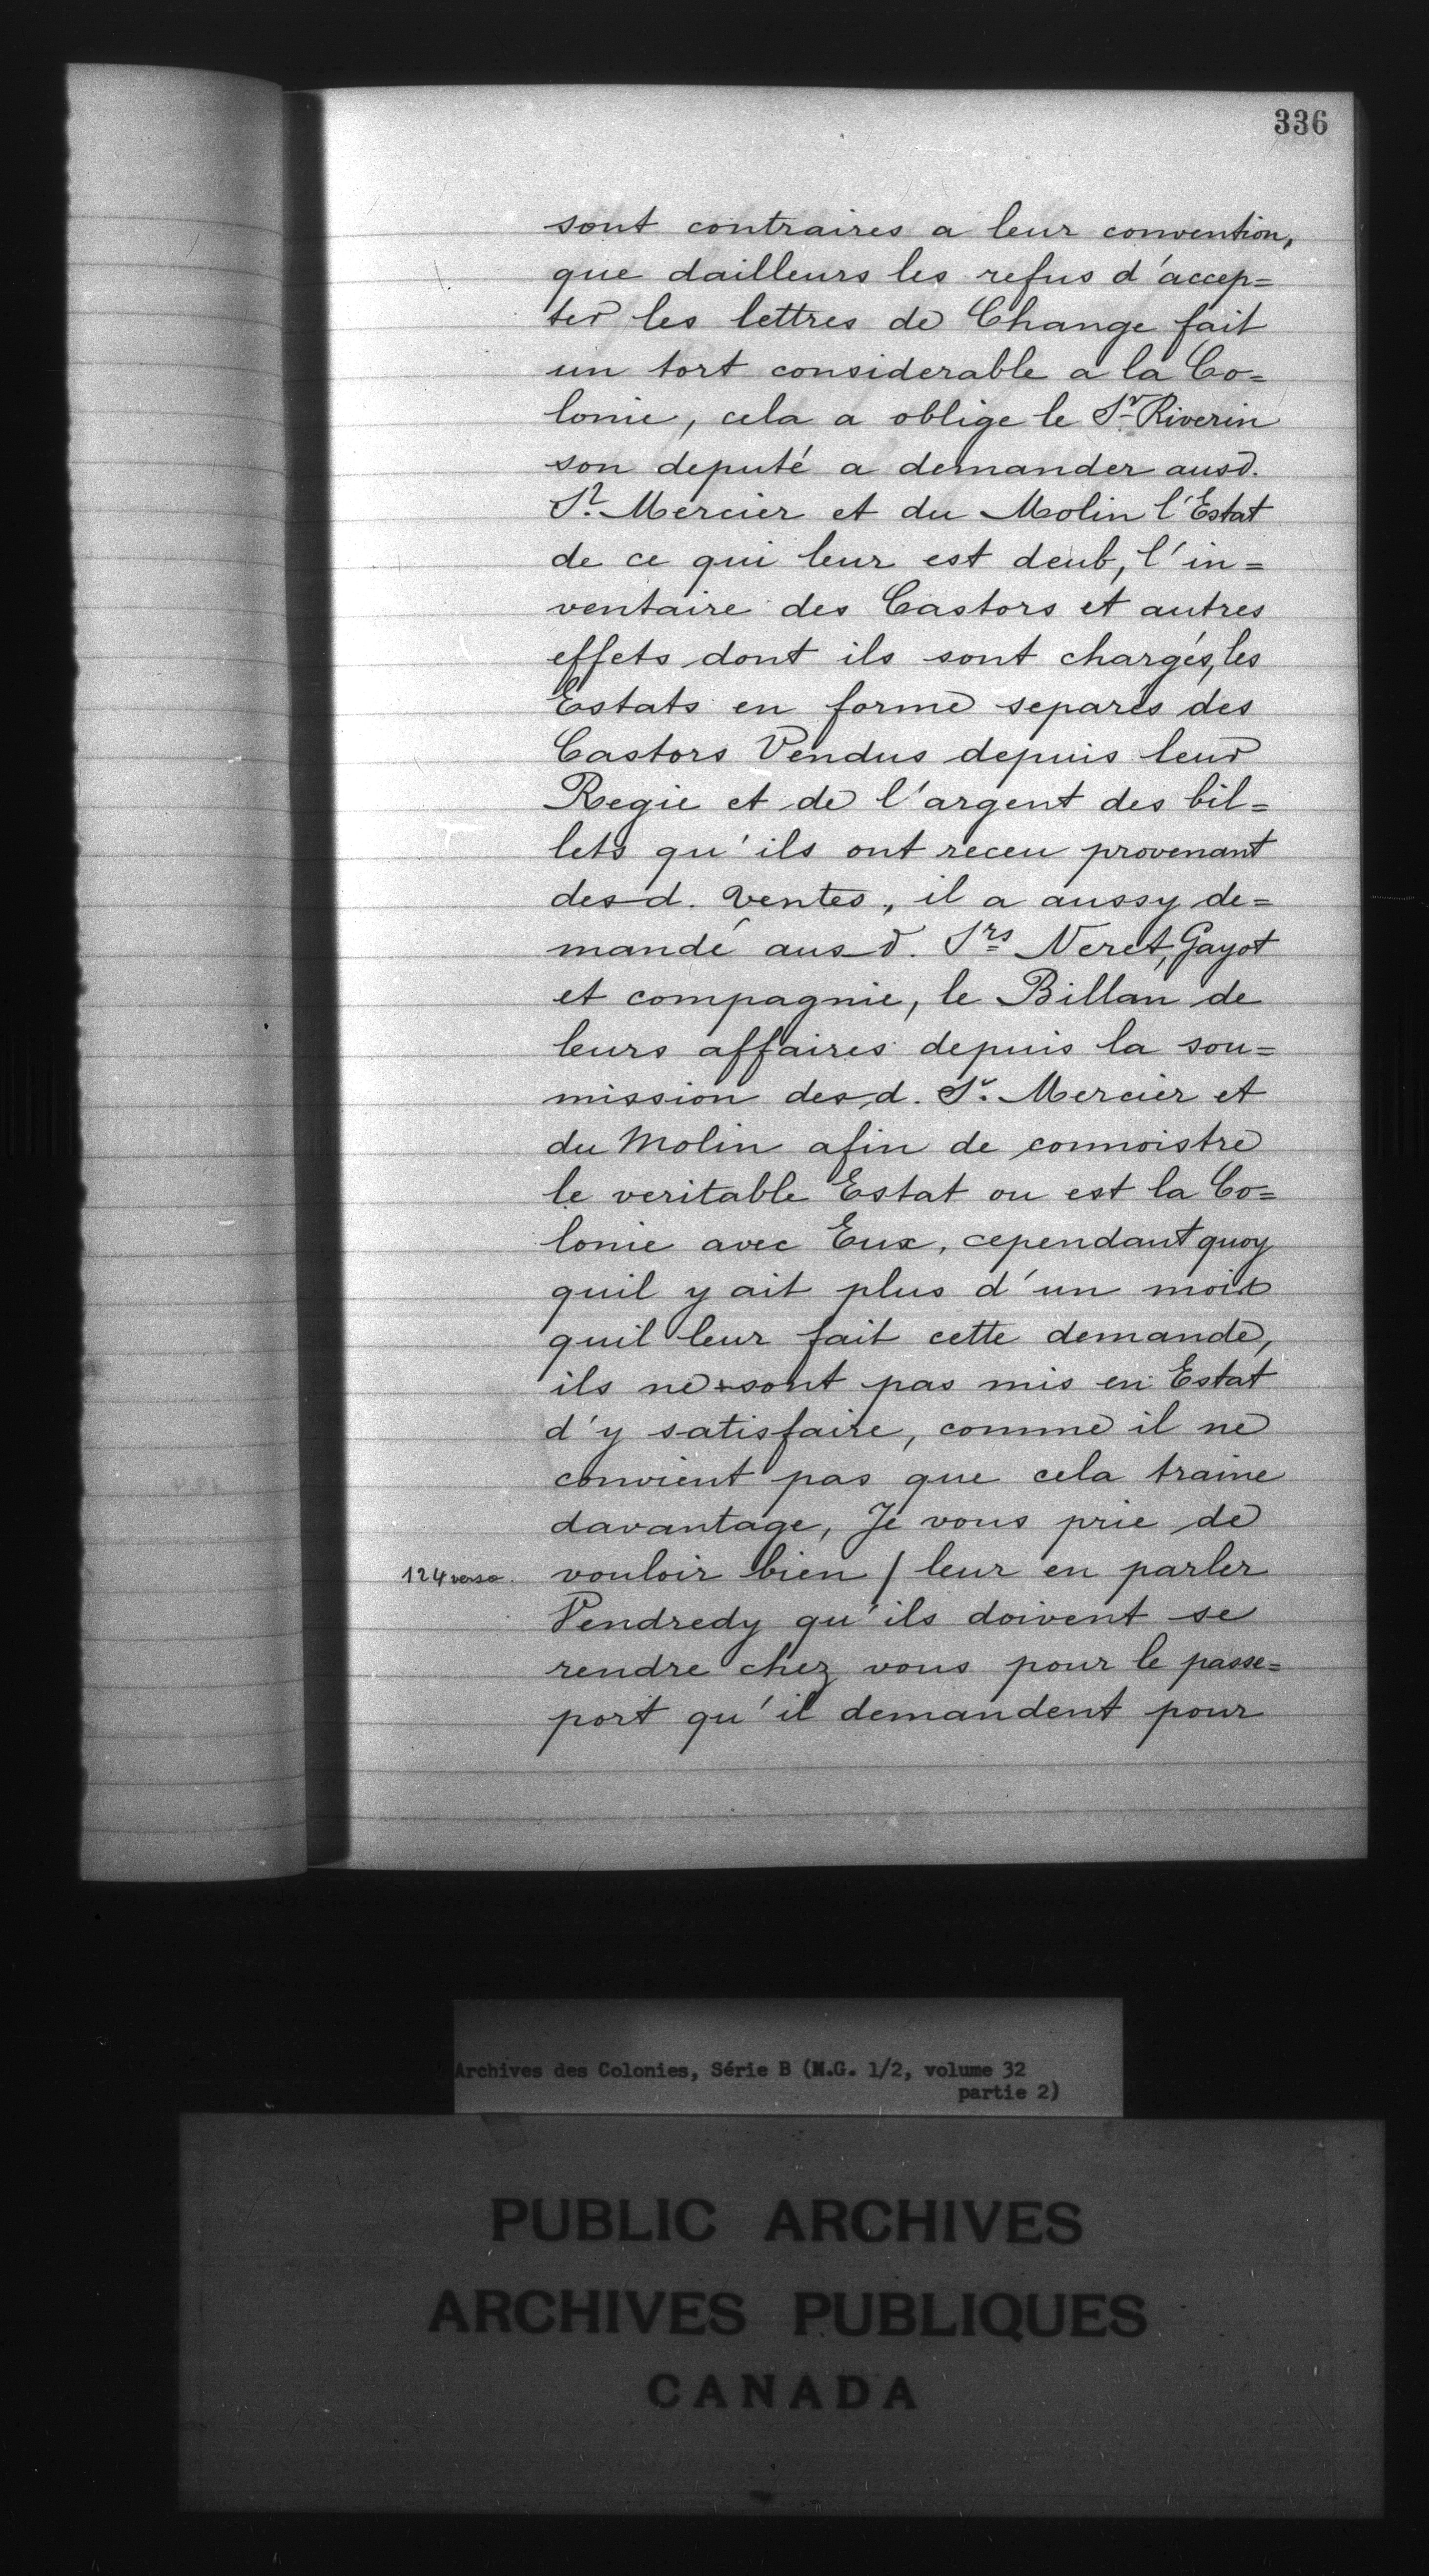 336
sont contraires a leur convention,
que dailleurs les refus d'accep=
ter les lettres de Change fait
un tort considerable a la Co=
lonie, cela a oblige le Sr Riverin
son deputé a demander ausd.
Sr. Mercier et du Molin l'Estat
de ce qui leur est deub, l'in=
ventaire des Castors et autres
effets dont ils sont chargés, les
Estats en forme separés des
Castors Vendus depuis leur
Regie et de l'argent des bil=
lets qu'ils ont receu provenant
desd. Ventes, il a aussy de=
mandé ausd. Srs Neret, Gayot
et compagnie, le Billan de
leurs affaires depuis la sou=
mission desd. Sr. Mercier et
du Molin afin de connoistre
le veritable Estat ou est la Co=
lonie avec Eux, cependant quoy
quil y ait plus d'un mois
quil leur fait cette demande,
ils ne sont pas mis en Estat
d'y satisfaire, comme il ne
convient pas que cela traine
davantage, Je vous prie de
124 verso. vouloir bien / leur en parler
Vendredy qu'ils doivent se
rendre chez vous pour le passe=
port qu'il demandent pour
Archives des Colonies, Série B (M.G. 1/2, volume 32
partie 2)
PUBLIC ARCHIVES
ARCHIVES PUBLIQUES
CANADA